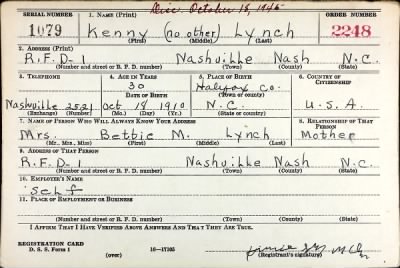 Dec. October 15, 1945
SERIAL NUMBER 1. NAME (Print) ORDER NUMBER
1079 Kenny (no other) Lynch 2248
(First) (Middle) (Last)
2. ADDRESS (Print)
R.F.D-1 Nashville Nash N.C.
(Number and street or R. F. D. number) (Town) (County) (State)
3. TELEPHONE 4. AGE IN YEARS 5. PLACE OF BIRTH 6. COUNTRY OF CITIZENSHIP
30 Halifax Co.
DATE OF BIRTH (Town or county)
Nashville 2521 Oct 18 1910 N.C. U.S.A.
(Exchange) (Number) (Mo.) (Day) (Yr.) (State or country)
7. NAME OF PERSON WHO WILL ALWAYS KNOW YOUR ADDRESS 8. RELATIONSHIP OF THAT PERSON
Mrs. Bettie M. Lynch Mother
(Mr., Mrs., Miss) (First) (Middle) (Last)
9. ADDRESS OF THAT PERSON
R.F.D-1 Nashville Nash N.C.
(Number and street or R. F. D. number) (Town) (County) (State)
10. EMPLOYER'S NAME
Self
11. PLACE OF EMPLOYMENT OR BUSINESS
(Number and street or R. F. D. number) (Town) (County) (State)
I AFFIRM THAT I HAVE VERIFIED ABOVE ANSWERS AND THAT THEY ARE TRUE.
REGISTRATION CARD
D. S. S. Form 1 16-17105
(over) (Registrant's signature)